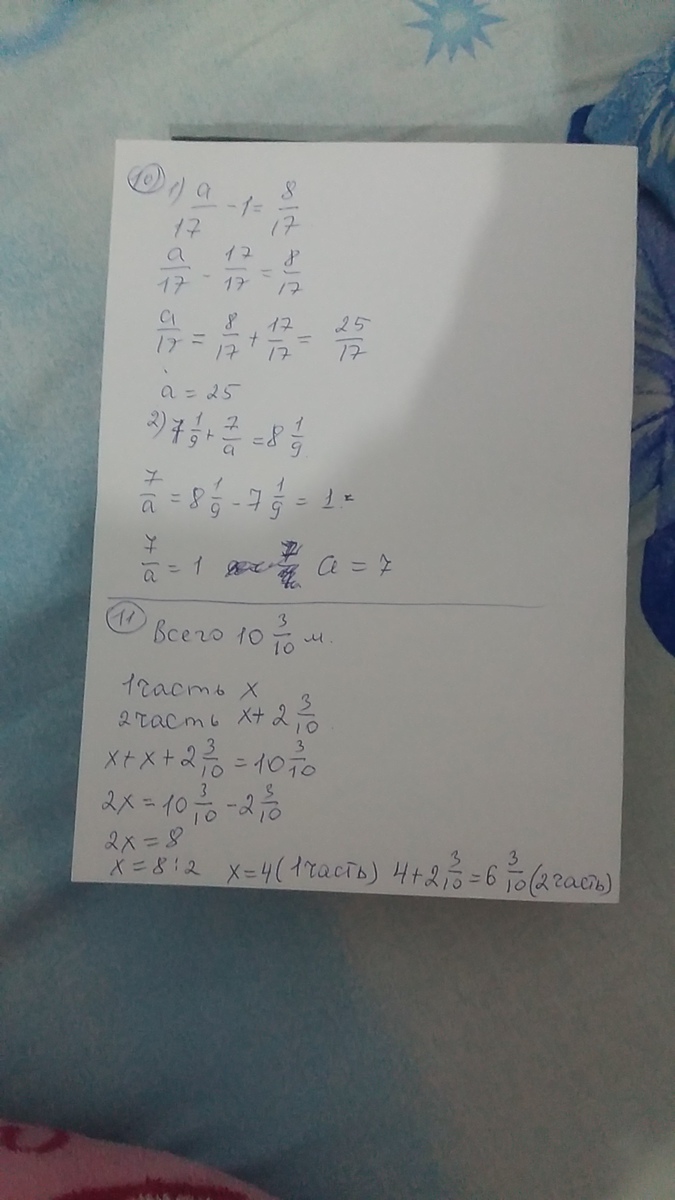 10) 1) a/17 - 1 = 8/17
a/17 - 17/17 = 8/17
a/17 = 8/17 + 17/17 = 25/17
a = 25
2) 7 1/9 + 7/a = 8 1/9
7/a = 8 1/9 - 7 1/9 = 1
7/a = 1 a = 7
11 Всего 10 3/10 м.
1 часть x
2 часть x + 2 3/10
x + x + 2 3/10 = 10 3/10
2x = 10 3/10 - 2 3/10
2x = 8
x = 8 : 2 x = 4 (1 часть) 4 + 2 3/10 = 6 3/10 (2 часть)